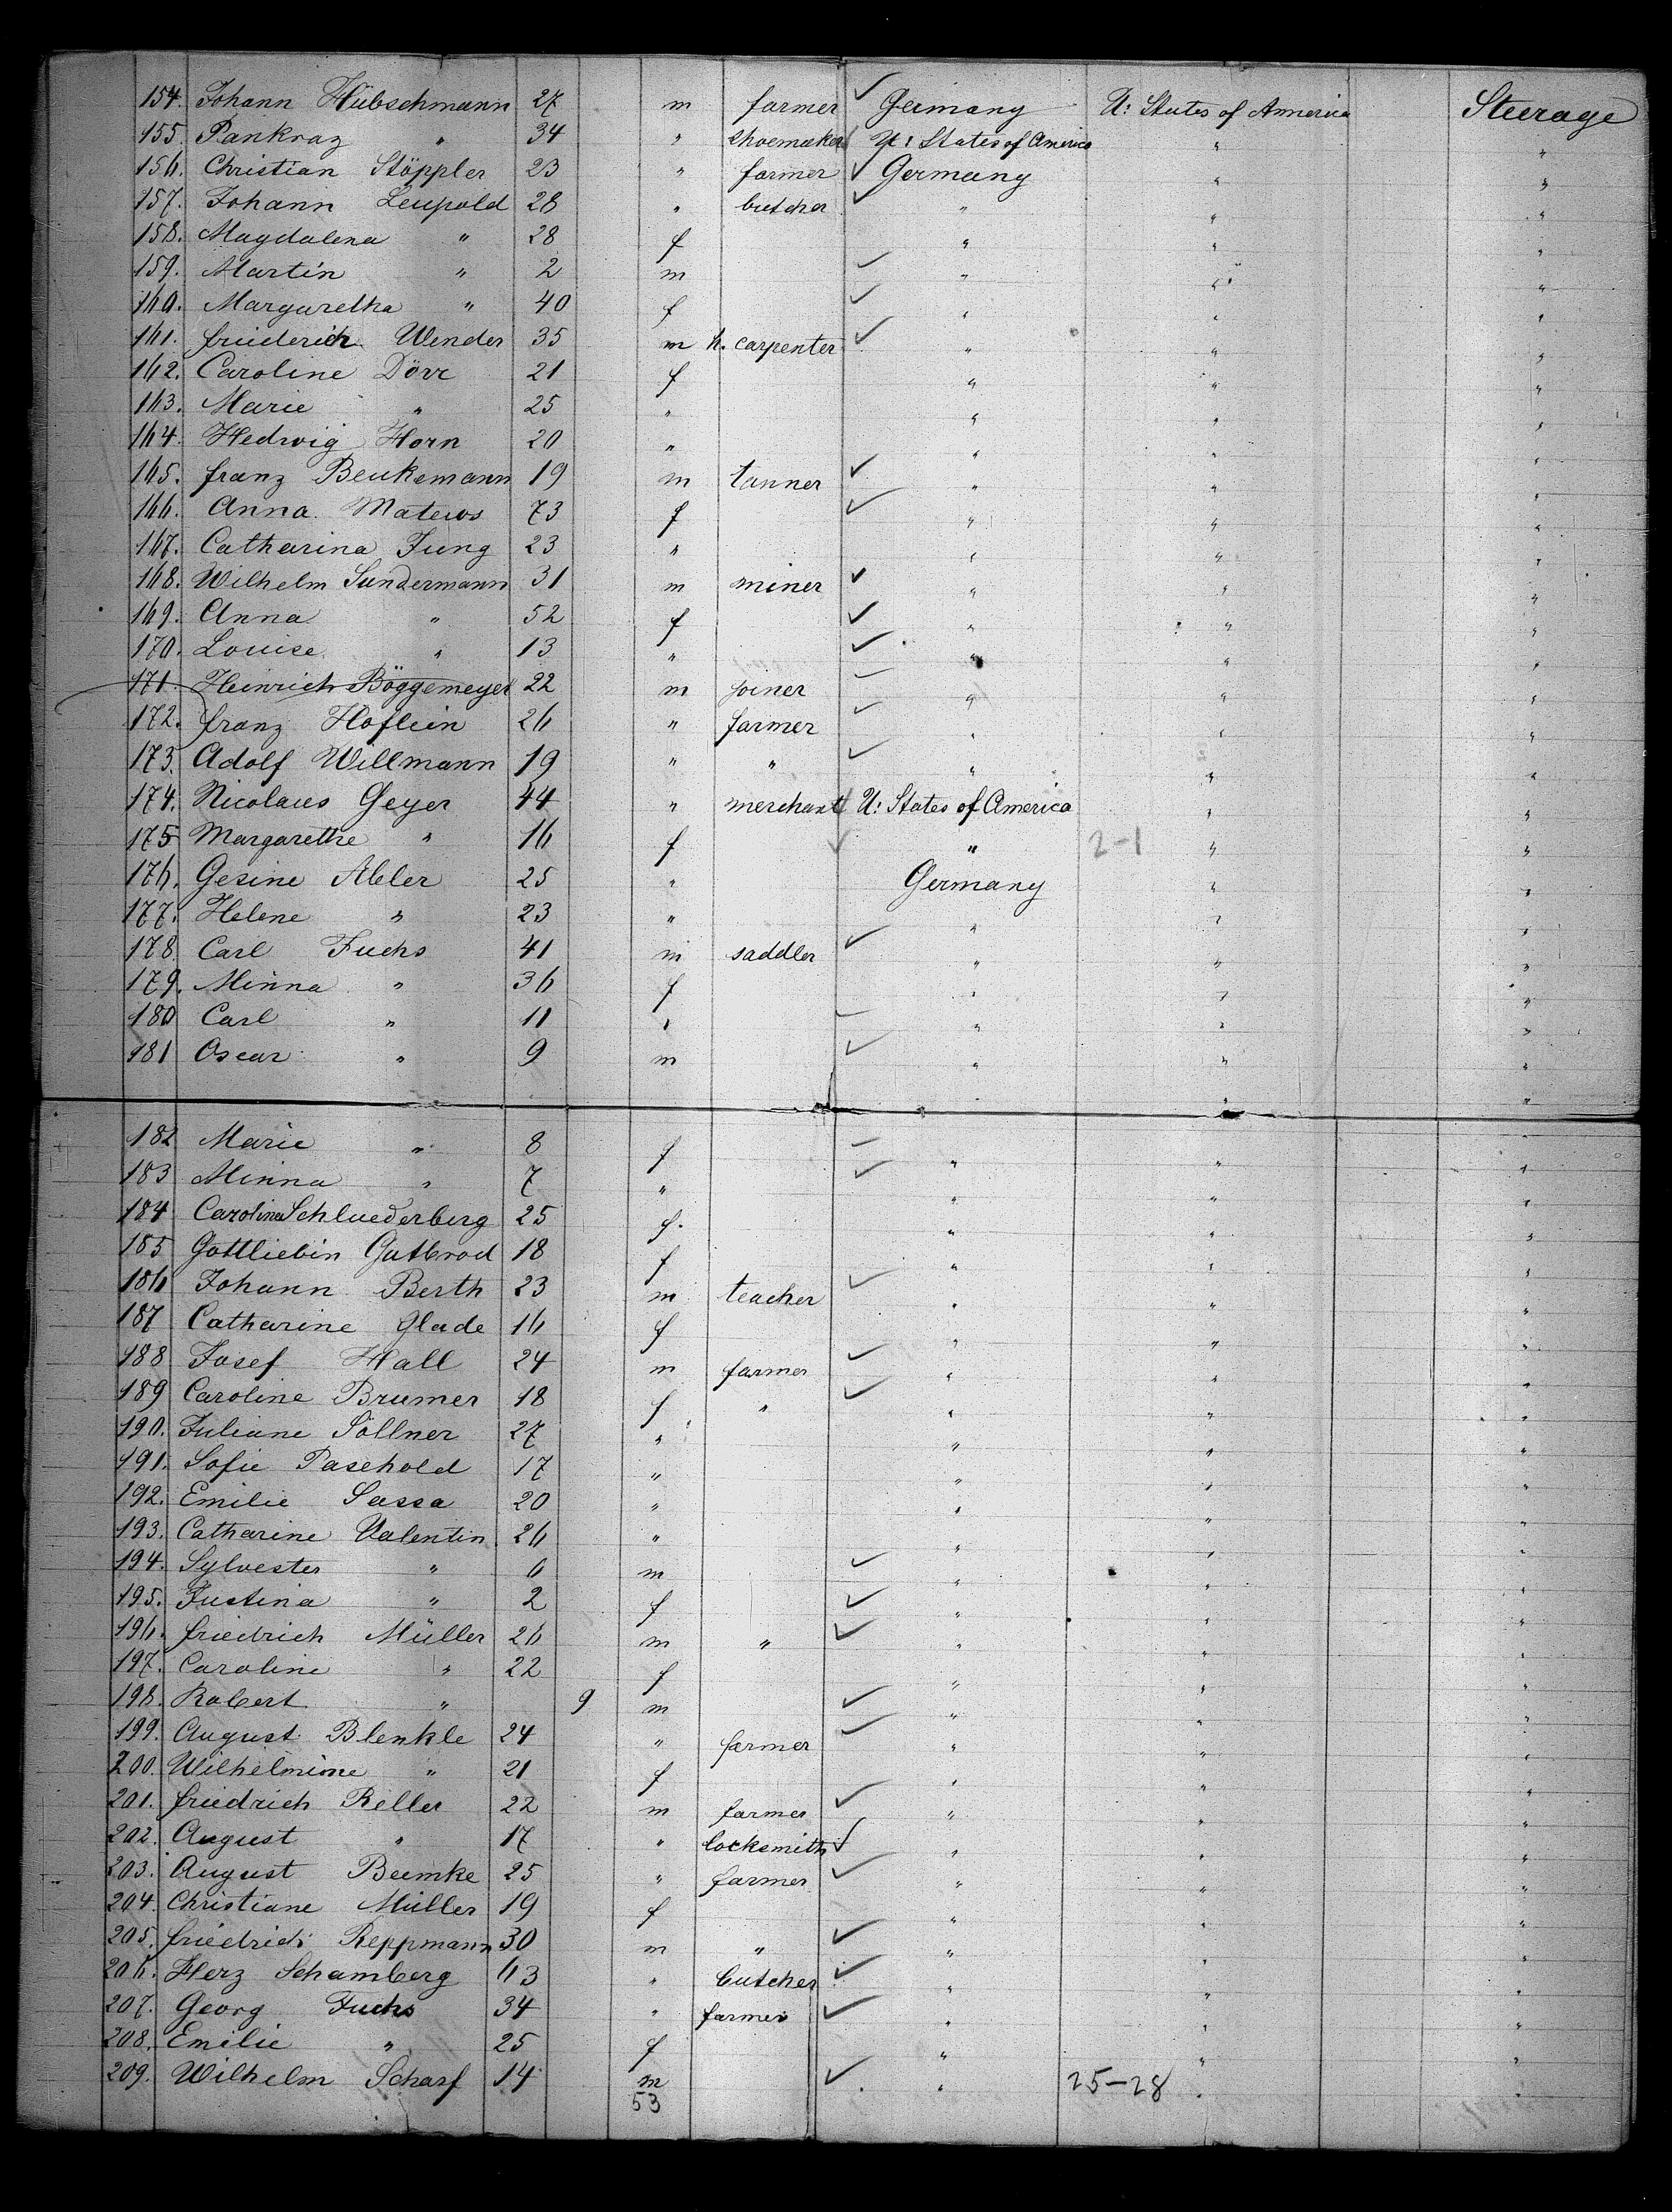 154. Johann Hübschmann 27 m farmer ✓ Germany U: States of America Steerage
155. Pankraz " 34 " shoemaker ✓ U: States of America " "
156. Christian Stöppler 23 " farmer ✓ Germany " "
157. Johann Leupold 28 " butcher ✓ " " "
158. Magdalena " 28 f " " "
159. Martin " 2 m ✓ " " "
160. Margaretha " 40 f ✓ " " "
161. friederich Wender 35 m h. carpenter ✓ " " "
162. Caroline Dörr 21 f " " "
163. Marie " 25 " " " "
164. Hedwig Horn 20 " " " "
165. franz Beukemann 19 m tanner ✓ " " "
166. Anna Matews 73 f ✓ " " "
167. Catharina Jung 23 " " " "
168. Wilhelm Sundermann 31 m miner ✓ " " "
169. Anna " 52 f ✓ " " "
170. Louise " 13 " ✓ " " "
171. Heinrich Böggemeyer 22 m joiner ✓ " " "
172. franz Hoflein 26 " farmer ✓ " " "
173. Adolf Willmann 19 " " ✓ " " "
174. Nicolaus Geyer 44 " merchant ✓ U: States of America " "
175 Margarethe " 16 f ✓ " 2-1 " "
176. Gesine Abler 25 " Germany " "
177. Helene " 23 " " " "
178. Carl Fuchs 41 m saddler ✓ " " "
179. Minna " 36 f " " "
180 Carl " 11 " ✓ " " "
181 Oscar " 9 m ✓ " " "
182 Marie " 8 f ✓ " " "
183 Minna " 7 " ✓ " " "
184 Carolina Schluederberg 25 f. " " "
185 Gottliebin Gutbrod 18 f " " "
186 Johann Berth 23 m teacher ✓ " " "
187 Catharine Glade 16 f " " "
188 Josef Hall 24 m farmer ✓ " " "
189 Caroline Brumer 18 f " ✓ " " "
190. Juliane Söllner 27 " " " "
191. Sofie Paschold 17 " " " "
192. Emilie Sassa 20 " " " "
193. Catharine Valentin 26 " " " "
194. Sylvester " 6 m ✓ " " "
195. Justina " 2 f ✓ " " "
196. friedrich Müller 26 m " ✓ " " "
197. Caroline " 22 f " " "
198. Robert " 9 m ✓ " " "
199. August Blenkle 24 " farmer ✓ " " "
200. Wilhelmine " 21 f " " "
201. friedrich Reller 22 m farmer ✓ " " "
202. August " 17 " locksmith ✓ " " "
203. August Beemke 25 " farmer ✓ " " "
204. Christiane Müller 19 f " " "
205. friedrich Reppmann 30 m " ✓ " " "
206. Herz Schamberg 63 " butcher ✓ " " "
207. Georg Fuchs 34 " farmer ✓ " " "
208. Emilie " 25 f " " "
209. Wilhelm Scharf 14 m ✓ " 25-28 " "
53